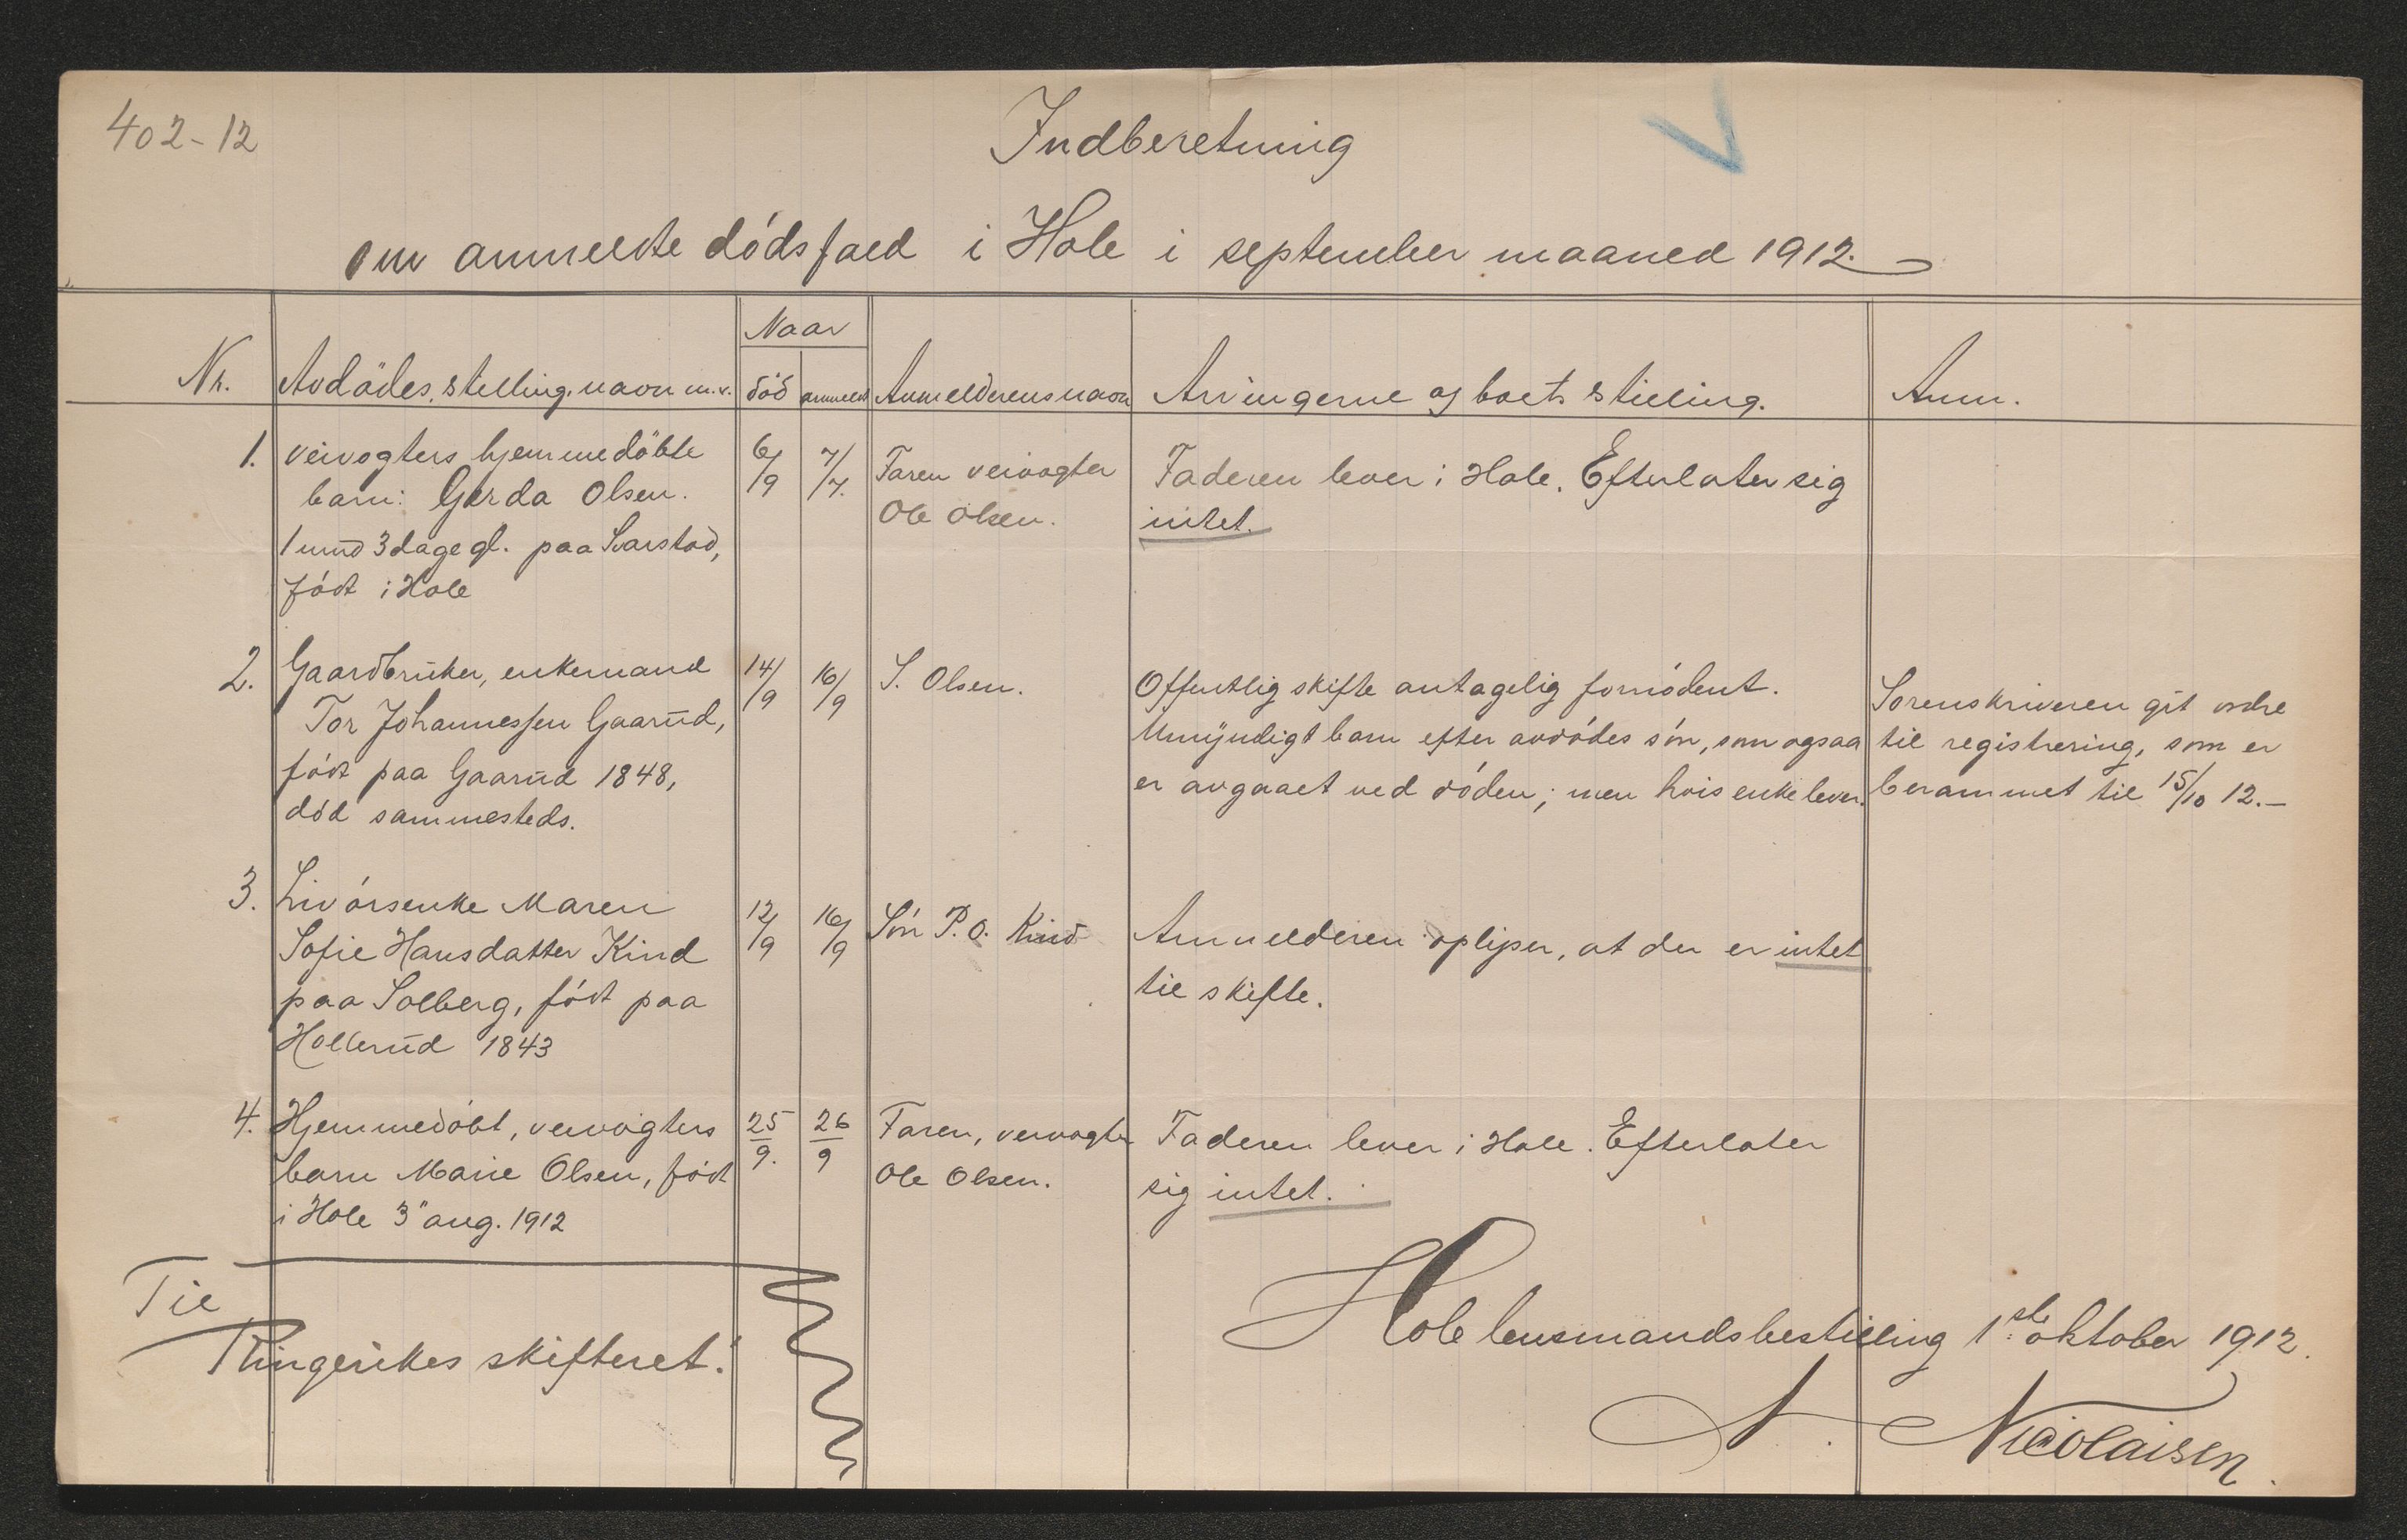 402-12
Indberetning
om anmeldte dödsfald i Hole i september maaned 1912.
Naar
Nr. Avdödes, stilling, navn m.v. död anmeldt Anmelderens navn Arvingerne og boets stilling. Anm.
1. veivogters hjemmedöbte 6/9 7/7. Faren veivogter Faderen lever i Hole. Efterlater sig
barn: Gerda Olsen. Ole Olsen. intet.
1 mnd 3 dage gl. paa Svarstad,
födt i Hole
2. Gaardbruker, enkemand 14/9 16/9 S. Olsen. Offentlig skifte antagelig fornödent. Sorenskriveren git ordre
Tor Johannessen Gaarud, Umyndigt barn efter avdödes sön, som ogsaa til registrering, som er
födt paa Gaarud 1848, er avgaaet ved döden; men hvis enke lever. berammet til 15/10 12.-
död sammesteds.
3. Livörsenke Maren 12/9 16/9 Sön P.O. Kind Anmelderen oplyser, at der er intet
Sofie Hansdatter Kind til skifte.
paa Solberg, födt paa
Hollerud 1843
4. Hjemmedöbt, veivogters 25/9. 26/9 Faren, veivogter Faderen lever i Hole. Efterlater
barn Marie Olsen, födt Ole Olsen. sig intet.
i Hole 3" aug. 1912
Til
Ringerikes skifteret.
Hole lensmandsbestilling 1ste oktober 1912.
N. Nicolaisen.